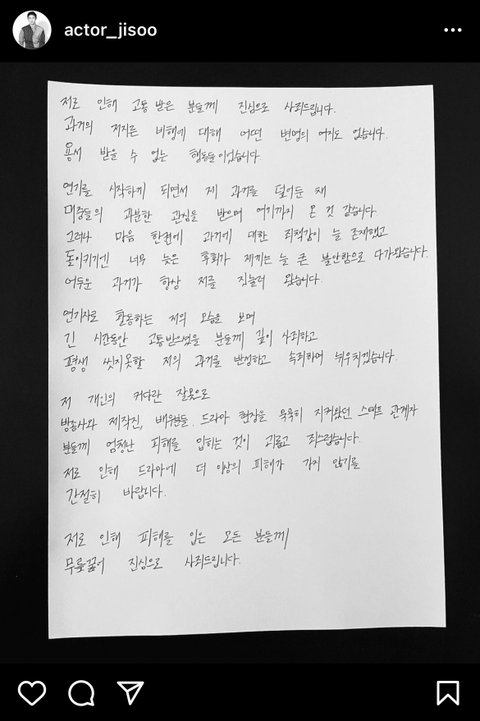 actor_jisoo
저로 인해 고통 받은 분들께 진심으로 사죄드립니다.
과거의 저지른 비행에 대해 어떤 변명의 여지도 없습니다.
용서 받을 수 없는 행동들이었습니다
연기를 시작하게 되면서 제 과거를 덮어둔 채
대중들의 과분한 관심을 받으며 여기까지 온 것 같습니다
그러나 마음 한켠에 과거에 대한 죄책감이 늘 존재했고
돌이키기엔 너무 늦은 후회가 저에게는 늘 큰 불안함으로 다가왔습니다.
어두운 과거가 항상 저를 짓눌러 왔습니다.
연기자로 활동하는 저의 모습을 보며
긴 시간동안 고통받으셨을 분들께 깊이 사죄하고
평생 씻지못할 저의 과거를 반성하고 속죄하며 뉘우치겠습니다.
저 개인의 커다란 잘못으로
방송사와 제작진, 배우분들, 드라마 현장을 묵묵히 지켜왔던 스태프 관계자
분들께 엄청난 피해를 입히는 것이 괴롭고 죄스럽습니다.
저로 인해 드라마에 더 이상의 피해가 가지 않기를
간절히 바랍니다.
저로 인해 피해를 입은 모든 분들께
무릎꿇어 진심으로 사죄드립니다.